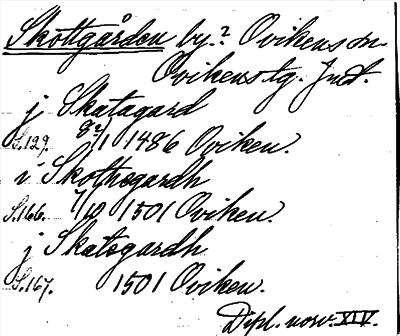 Skottgården by? Ovikens sn.
Ovikens tg. Jmt.
j Skatagard
S. 129. 8/1 1486 Oviken.
i Skothogardh
S. 166. 7/10 1501 Oviken.
j Skatogardh
S. 167. 1501 Oviken.
Dipl. norv. XIV.